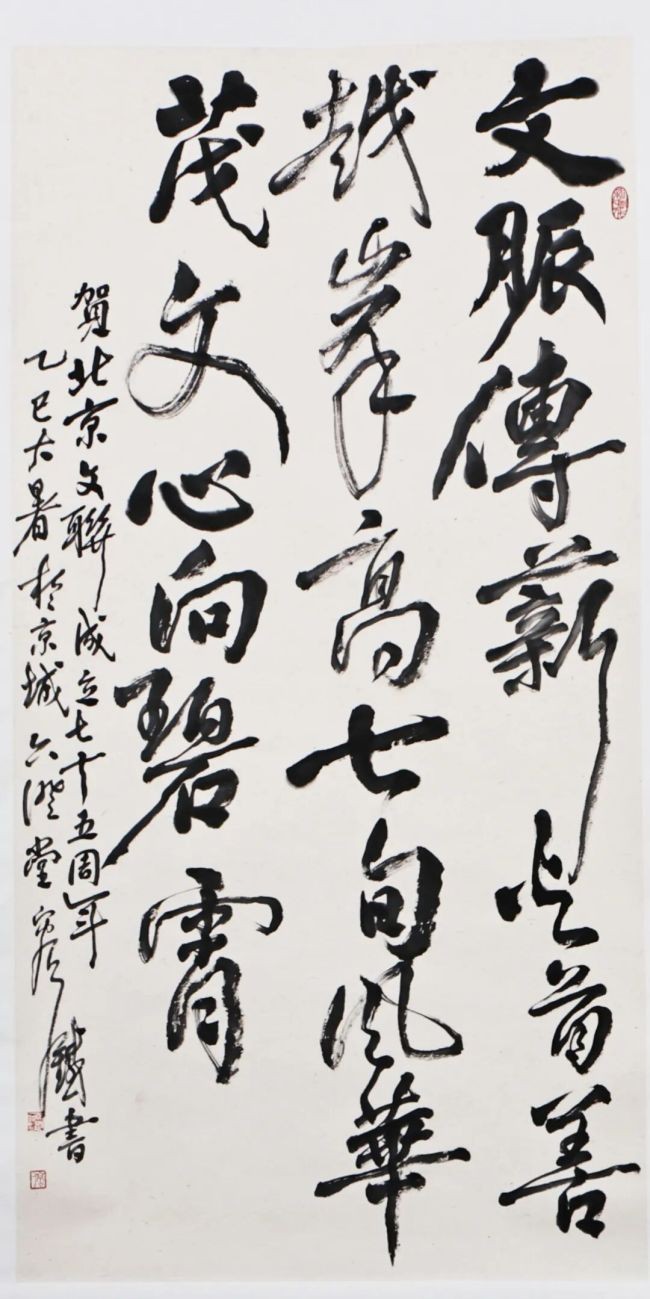 文脈傳薪火首善
越峯高七旬風華
茂文心向碧霄
賀北京文聯成立七十五周年
乙巳大暑於京城六澄堂鐵書